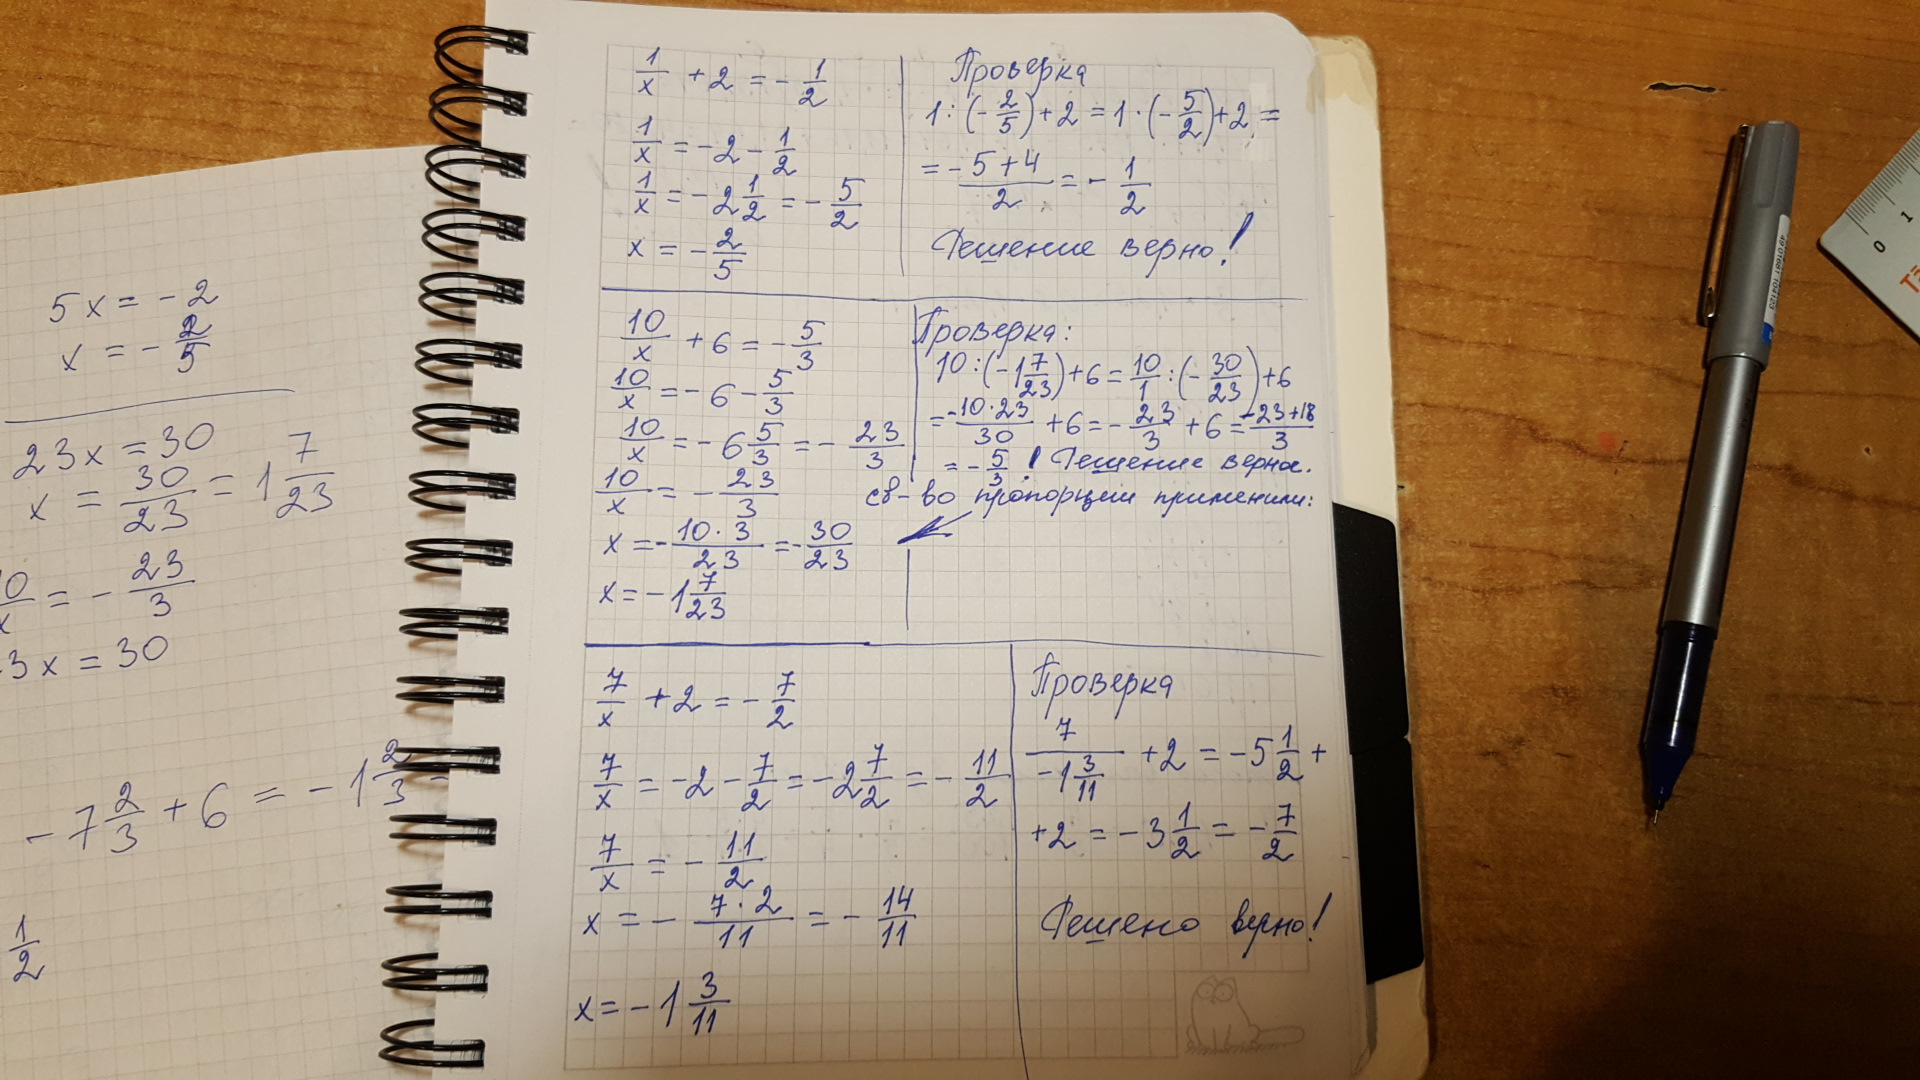 5x = -2
x = -2/5
23x = 30
x = 30/23 = 1 7/23
= -23/3
3x = 30
-7 2/3 + 6 = -1 2/3
1/2
1/x + 2 = -1/2
1/x = -2 - 1/2
1/x = -2 1/2 = -5/2
x = -2/5
Проверка
1 : (-2/5) + 2 = 1 · (-5/2) + 2 =
= -5+4/2 = -1/2
Решение верно!
10/x + 6 = -5/3
10/x = -6 - 5/3
10/x = -6 5/3 = -23/3
10/x = -23/3
x = -10·3/23 = -30/23
x = -1 7/23
Проверка:
10 : (-1 7/23) + 6 = 10/1 : (-30/23) + 6
= -10·23/30 + 6 = -23/3 + 6 = -23+18/3
= -5/3 ! Решение верно.
св-во пропорции применили:
7/x + 2 = -7/2
7/x = -2 - 7/2 = -2 7/2 = -11/2
7/x = -11/2
x = -7·2/11 = -14/11
x = -1 3/11
Проверка
7/-1 3/11 + 2 = -5 1/2 +
+2 = -3 1/2 = -7/2
Решено верно!
0 1